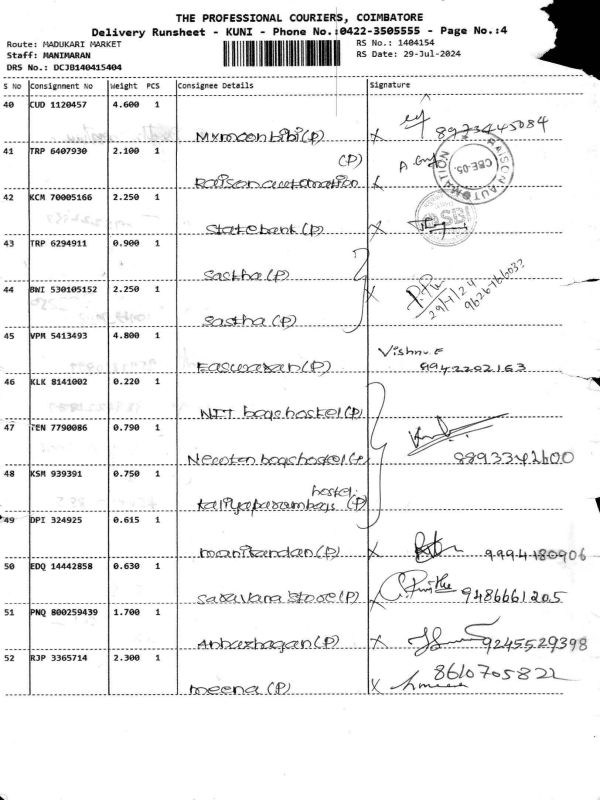 THE PROFESSIONAL COURIERS, COIMBATORE
Delivery Runsheet - KUNI - Phone No.:0422-3505555 - Page No.:4
Route: MADUKARI MARKET
RS No.: 1404154
Staff: MANIMARAN
RS Date: 29-Jul-2024
DRS No.: DCJB140415404
S No Consignment No Weight PCS Consignee Details Signature
40 CUD 1120457 4.600 1
Mymoon bibi (P) X 8973445084
41 TRP 6407930 2.100 1
(P)
Raison automation
RAISON AUTOMATION CBE-05.
42 KCM 70005166 2.250 1
State bank (P) X
SBI
43 TRP 6294911 0.900 1
Sastha (P)
44 BWI 530105152 2.250 1
X 29/7/24
Sastha (P)
45 VPM 5413493 4.800 1
Vishnu E
Easwaran (P) 8942202163
46 KLK 8141002 0.220 1
NIT boys hostel (P)
47 TEN 7790086 0.790 1
Necoten boys hostel (P) 8893342600
48 KSM 939391 0.750 1
hostel
(P)
49 DPI 324925 0.615 1
manikandan (P) X 9994180906
50 EDQ 14442858 0.630 1
Saravana Store (P) X 9486661205
51 PNQ 800259439 1.700 1
Anbazhagan (P) X 9245529398
52 RJP 3365714 2.300 1
8610705822
meena (P) X